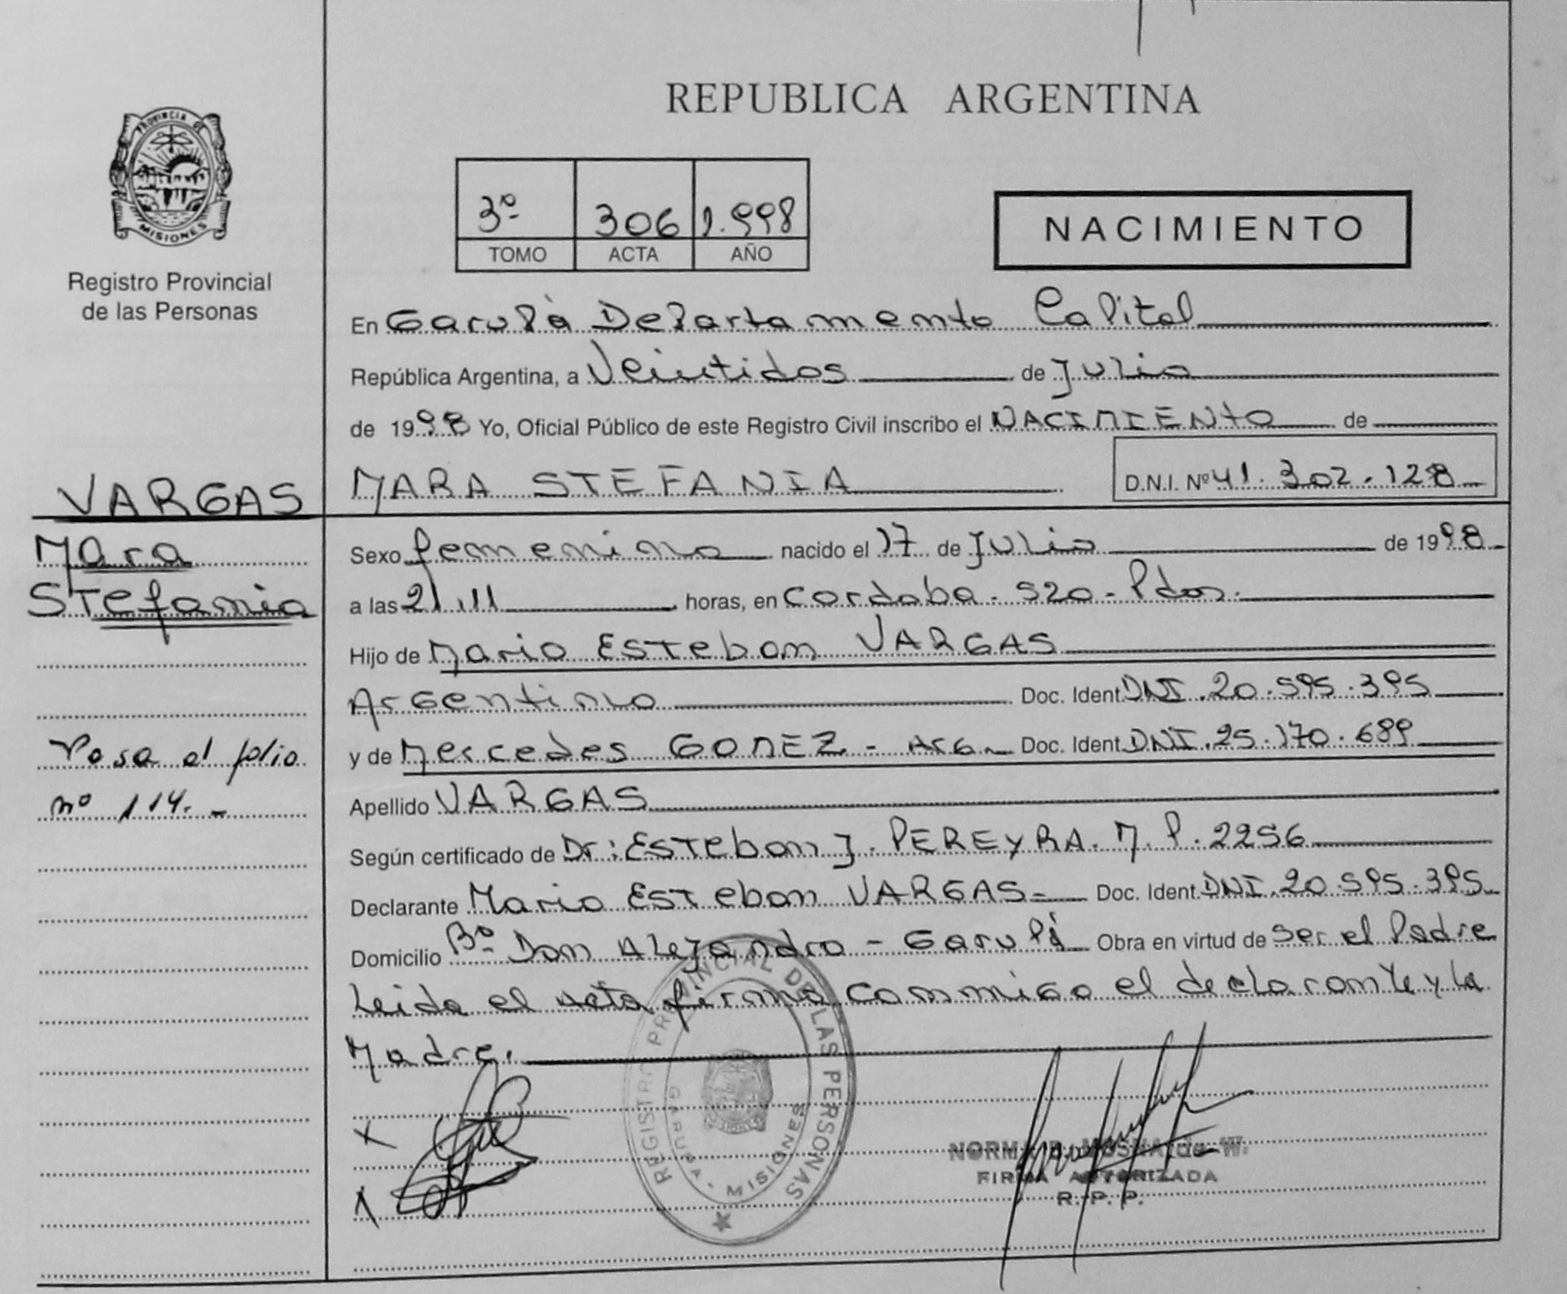 REPUBLICA ARGENTINA
PROVINCIA DE
MISIONES
Registro Provincial
de las Personas
3º 306 1.998
TOMO ACTA AÑO
NACIMIENTO
En Garupà Departamento Capital
República Argentina, a Veintidos de Julio
de 1998 Yo, Oficial Público de este Registro Civil inscribo el NACIMIENTO de
VARGAS
MARA STEFANIA D.N.I. Nº 41.302.128
Mara
Stefania
Sexo femenino nacido el 17 de Julio de 1998
a las 21,11 horas, en Cordoba. 520 - Pdas.
Hijo de Mario Esteban VARGAS
Argentino Doc. Ident. DNI. 20.595.395
Pasa al folio
nº 114. -
y de Mercedes GOMEZ - Arg. Doc. Ident. DNI. 25.170.689
Apellido VARGAS
Según certificado de Dr: Esteban J. PEREYRA. M.P. 2256
Declarante Mario Esteban VARGAS - Doc. Ident. DNI. 20.595.395
Domicilio Bº Don Alejandro - Garupá Obra en virtud de ser el Padre
Leida el acta firma conmigo el declarante y la
Madre.
REGISTRO PROVINCIAL DE LAS PERSONAS
GARUPA - MISIONES
NORMA
FIRMA AUTORIZADA
R. P. P.